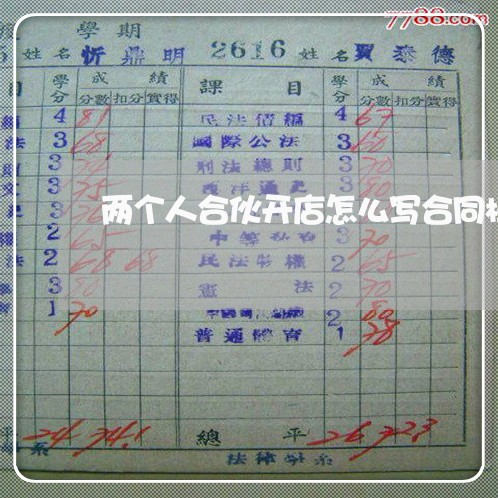 7788.com
學期
姓名 忻鼎明 2616 姓名 賈泰德
目 學分 成績 課目 學分 成績
分數 扣分 實得 分數 扣分 實得
4 81 民法債編 4 67
法 3 68 國際公法 3 60
3 刑法總則 3 70
3 75 西洋通史 3 80
两个人合伙开店怎么写合同
2 65 3 70
法 2 68 68 民法物權 2 65
3 80 憲法 2 70
1 70 2 80
普通體育 1 78
平 24 74.1 總平 26 72.3
系 法律學系